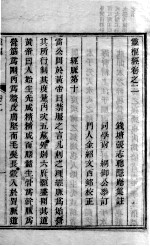 靈樞經卷之二
錢塘張志聰隱菴集註
同學
公參訂
門人金紹文百銘校正
經脈第十
雷公問於黃帝曰禁服之言凡刺之理經脈為始營
其所行制其度量內次五臟外別六腑願盡聞其道
黃帝曰人始生先成精精成而腦髓生骨為幹脈為
營筋為剛肉為牆皮膚堅而毛髮長穀入於胃脈道